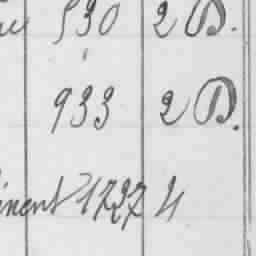 530 2 D.
933 2 D.
inent 1727 4